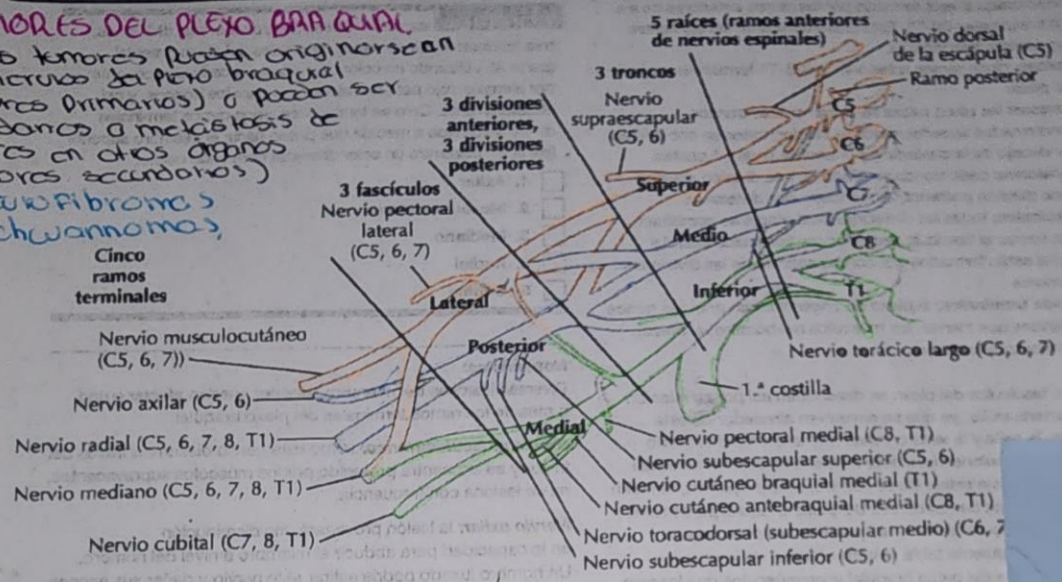 ORES DEL PLEXO BRAQUIAL
tumores Pueden originarse en
nervios del plexo braquial
res primarios) o pueden ser
darios a metástasis de
res en otros órganos
ores secundarios)
urofibromas
chwannomas,
5 raíces (ramos anteriores
de nervios espinales)
Nervio dorsal
de la escápula (C5)
Ramo posterior
3 troncos
Nervio
supraescapular
(C5, 6)
3 divisiones
anteriores,
3 divisiones
posteriores
3 fascículos
Nervio pectoral
lateral
(C5, 6, 7)
Cinco
ramos
terminales
C5
C6
C7
C8
T1
Superior
Medio
Inferior
Lateral
Posterior
Medial
Nervio musculocutáneo
(C5, 6, 7))
Nervio axilar (C5, 6)
Nervio radial (C5, 6, 7, 8, T1)
Nervio mediano (C5, 6, 7, 8, T1)
Nervio cubital (C7, 8, T1)
Nervio torácico largo (C5, 6, 7)
1.ª costilla
Nervio pectoral medial (C8, T1)
Nervio subescapular superior (C5, 6)
Nervio cutáneo braquial medial (T1)
Nervio cutáneo antebraquial medial (C8, T1)
Nervio toracodorsal (subescapular medio) (C6, 7
Nervio subescapular inferior (C5, 6)